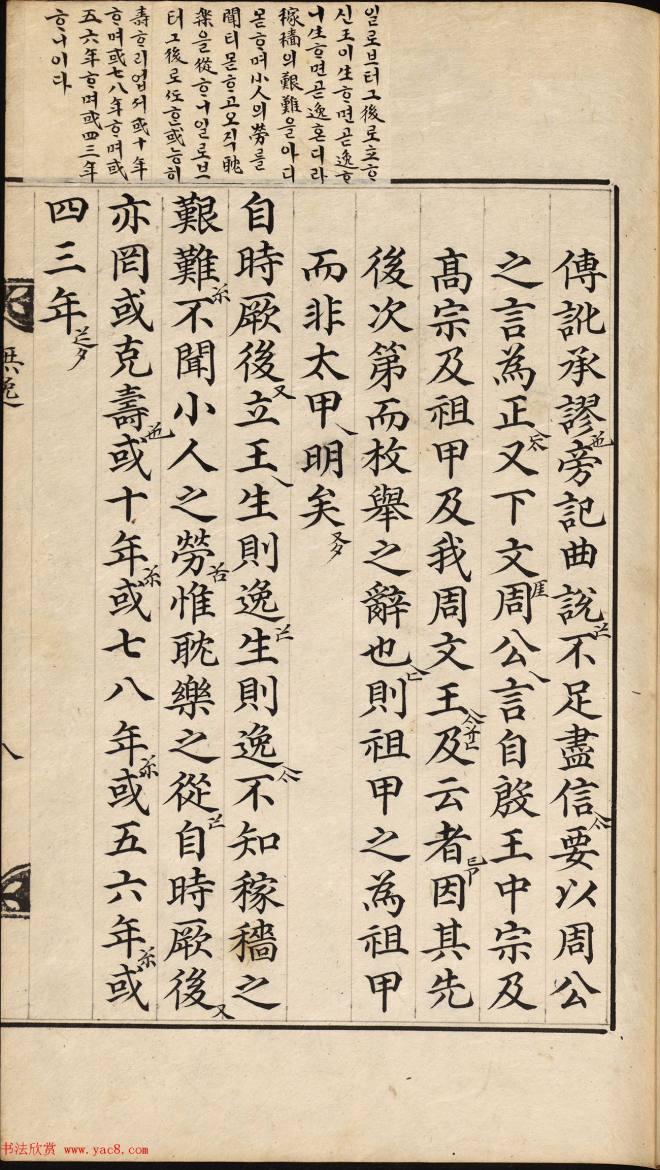 일로브터그後로立ᄒᆞ
신王이生ᄒᆞ면곧逸ᄒᆞ
니生ᄒᆞ면곧逸혼디라
稼穡의艱難을아디
몯ᄒᆞ며小人의勞를
聞티몯ᄒᆞ고오직耽
樂을從ᄒᆞ니일로브
터그後로 或능히
壽ᄒᆞ리업서或十年
ᄒᆞ며或七八年ᄒᆞ며或
五六年ᄒᆞ며或四三年
ᄒᆞ니이다
傳訛承謬旁記曲說不足盡信要以周公
之言為正又下文周公言自殷王中宗及
高宗及祖甲及我周文王及云者因其先
後次第而枚舉之辭也則祖甲之為祖甲
而非太甲明矣
自時厥後立王生則逸生則逸不知稼穡之
艱難不聞小人之勞惟耽樂之從自時厥後
亦罔或克壽或十年或七八年或五六年或
四三年
無逸
八
书法欣赏 www.yac8.com